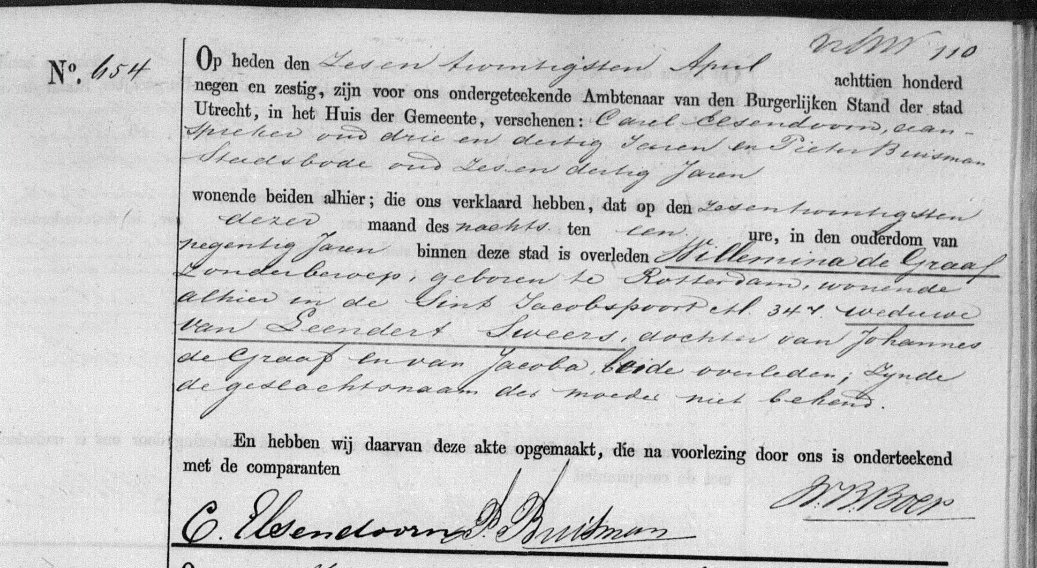 110
No. 654
Op heden den Zesen twintigsten April achttien honderd
negen en zestig, zijn voor ons ondergeteekende Ambtenaar van den Burgerlijken Stand der stad
Utrecht, in het Huis der Gemeente, verschenen: Carel Elsendoorn, aan-
spreker oud drie en dertig Jaren en Pieter Buisman
Stadsbode oud Zesen dertig Jaren
wonende beiden alhier; die ons verklaard hebben, dat op den Zesentwintigsten
dezer maand des nachts ten een ure, in den ouderdom van
negentig Jaren binnen deze stad is overleden Willemina de Graaf
Zonder beroep, geboren te Rotterdam, wonende
alhier in de Sint Jacobspoort 347 weduwe
van Leendert Sweers, dochter van Johannes
de Graaf en van Jacoba, beide overleden; Zynde
de geslachtsnaam der moeder niet bekend.
En hebben wij daarvan deze akte opgemaakt, die na voorlezing door ons is onderteekend
met de comparanten
C. Elsendoorn P. Buisman
Boer